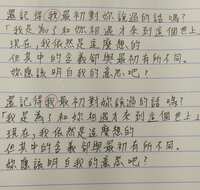 還記得我最初對妳說過的話嗎?
「我是為了和妳相遇才來到這個世上」
現在,我依然是這麼想的
但其中的意義卻與最初有所不同。
妳應該明白我的意思吧?
還記得我最初對妳說過的話嗎?
「我是為了和妳相遇才來到這個世上」
現在,我依然是這麼想的
但其中的意義卻與最初有所不同。
妳應該明白我的意思吧?